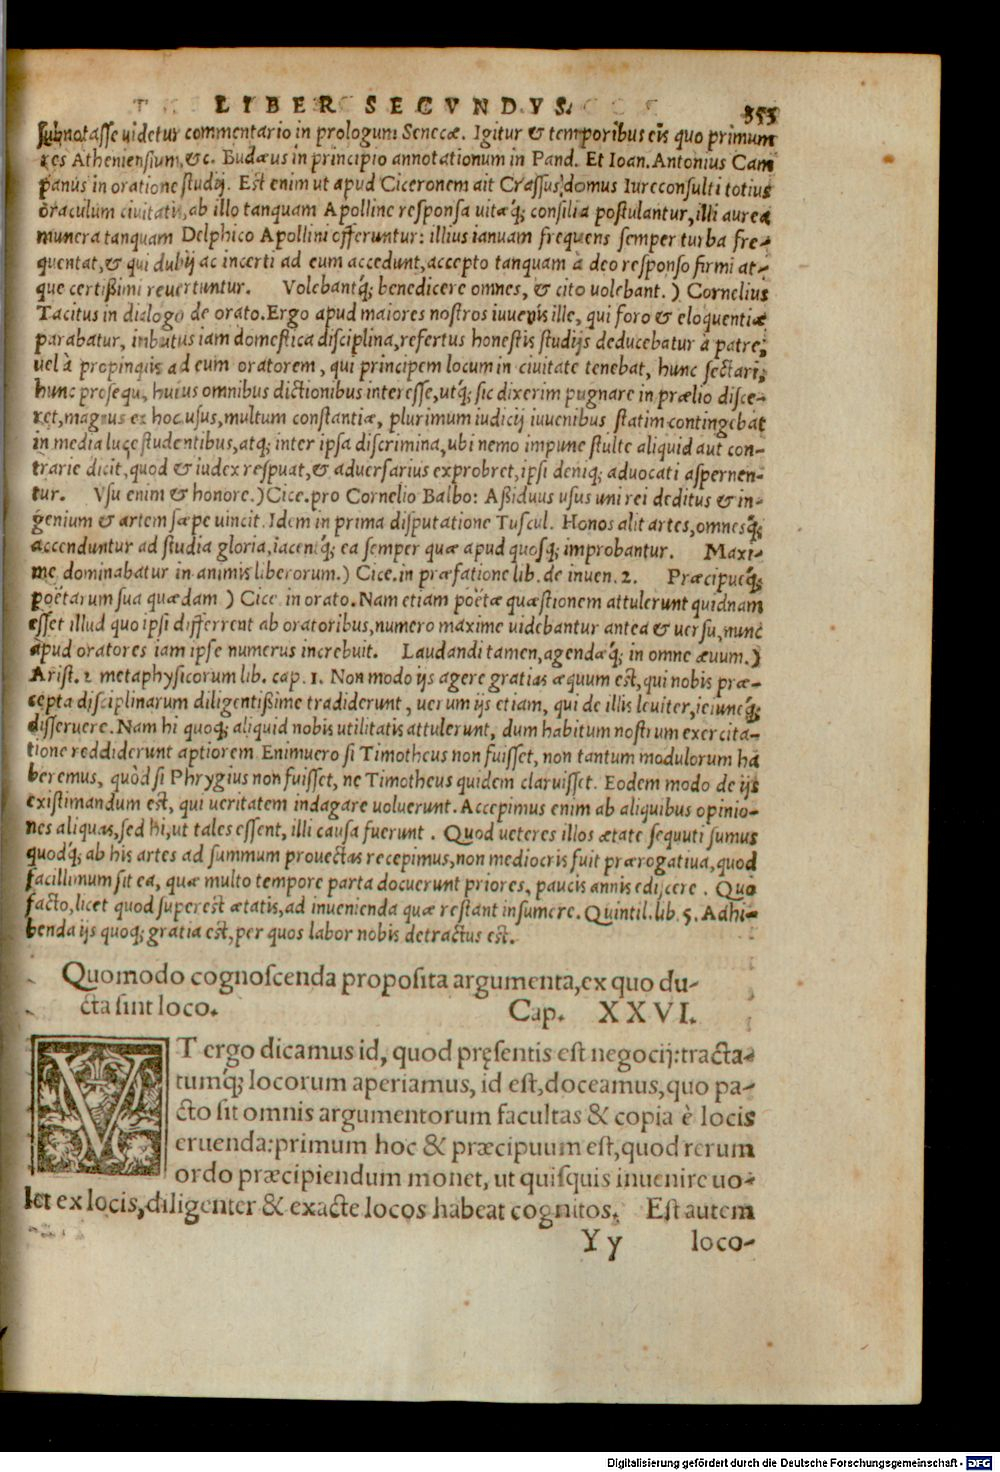 LIBER SECVNDVS. 353
subnotasse uidetur commentario in prologum Senecæ. Igitur & temporibus eis quo primum
res Atheniensium, &c. Budæus in principio annotationum in Pand. Et Ioan. Antonius Cam
panus in oratione studij. Est enim ut apud Ciceronem ait Crassus, domus Iureconsulti totius
oraculum ciuitatis, ab illo tanquam Apolline responsa uitæq́; consilia postulantur, illi aurea
munera tanquam Delphico Apollini offeruntur: illius ianuam frequens semper turba fre-
quentat, & qui dubij ac incerti ad eum accedunt, accepto tanquam à deo responso firmi at-
que certißimi reuertuntur. Volebantq́; benedicere omnes, & cito uolebant.) Cornelius
Tacitus in dialogo de orato. Ergo apud maiores nostros iuuenis ille, qui foro & eloquentiæ
parabatur, imbutus iam domestica disciplina, refertus honestis studijs deducebatur à patre,
uel à propinquis ad eum oratorem, qui principem locum in ciuitate tenebat, hunc sectari,
hunc prosequi, huius omnibus dictionibus interesse, utq́; sic dixerim pugnare in prælio disce-
ret, magnus ex hoc usus, multum constantiæ, plurimum iudicij iuuenibus statim contingebat
in media luce studentibus, atq; inter ipsa discrimina, ubi nemo impune stulte aliquid aut con-
trarie dicit, quod & iudex respuat, & aduersarius exprobret, ipsi deniq; aduocati aspernen-
tur. Vsu enim & honore.) Cice. pro Cornelio Balbo: Aßiduus usus uni rei deditus & in-
genium & artem sæpe uincit. Idem in prima disputatione Tuscul. Honos alit artes, omnesq́;
accenduntur ad studia gloria, iacentq́; ea semper quæ apud quosq; improbantur. Maxi-
me dominabatur in animis liberorum.) Cice. in præfatione lib. de inuen. 2. Præcipueq́;
poëtarum sua quædam) Cice. in orato. Nam etiam poëtæ quæstionem attulerunt quidnam
esset illud quo ipsi differrent ab oratoribus, numero maxime uidebantur antea & uersu, nunc
apud oratores iam ipse numerus increbuit. Laudandi tamen, agendæq́; in omne æuum.)
Arist. 2 metaphysicorum lib. cap. 1. Non modo ijs agere gratias æquum est, qui nobis præ-
cepta disciplinarum diligentißime tradiderunt, uerum ijs etiam, qui de illis leuiter, ieiuneq́;
disseruere. Nam hi quoq; aliquid nobis utilitatis attulerunt, dum habitum nostrum exercita-
tione reddiderunt aptiorem. Enimuero si Timotheus non fuisset, non tantum modulorum ha
beremus, quòd si Phrygius non fuisset, ne Timotheus quidem claruisset. Eodem modo de ijs
existimandum est, qui ueritatem indagare uoluerunt. Accepimus enim ab aliquibus opinio-
nes aliquas, sed hi, ut tales essent, illi causa fuerunt. Quod ueteres illos ætate sequuti sumus
quodq́; ab his artes ad summum prouectas recepimus, non mediocris fuit prærogatiua, quod
facillimum sit ea, quæ multo tempore parta docuerunt priores, paucis annis ediscere. Quo
facto, licet quod superest ætatis, ad inuenienda quæ restant insumere. Quintil. lib. 5. Adhi-
benda ijs quoq; gratia est, per quos labor nobis detractus est.
Quomodo cognoscenda proposita argumenta, ex quo du-
cta sint loco. Cap. XXVI.
VT ergo dicamus id, quod pręsentis est negocij: tracta-
tumq́; locorum aperiamus, id est, doceamus, quo pa-
cto sit omnis argumentorum facultas & copia è locis
eruenda: primum hoc & præcipuum est, quod rerum
ordo præcipiendum monet, ut quisquis inuenire uo-
let ex locis, diligenter & exacte locos habeat cognitos. Est autem
Yy loco-
Digitalisierung gefördert durch die Deutsche Forschungsgemeinschaft - DFG